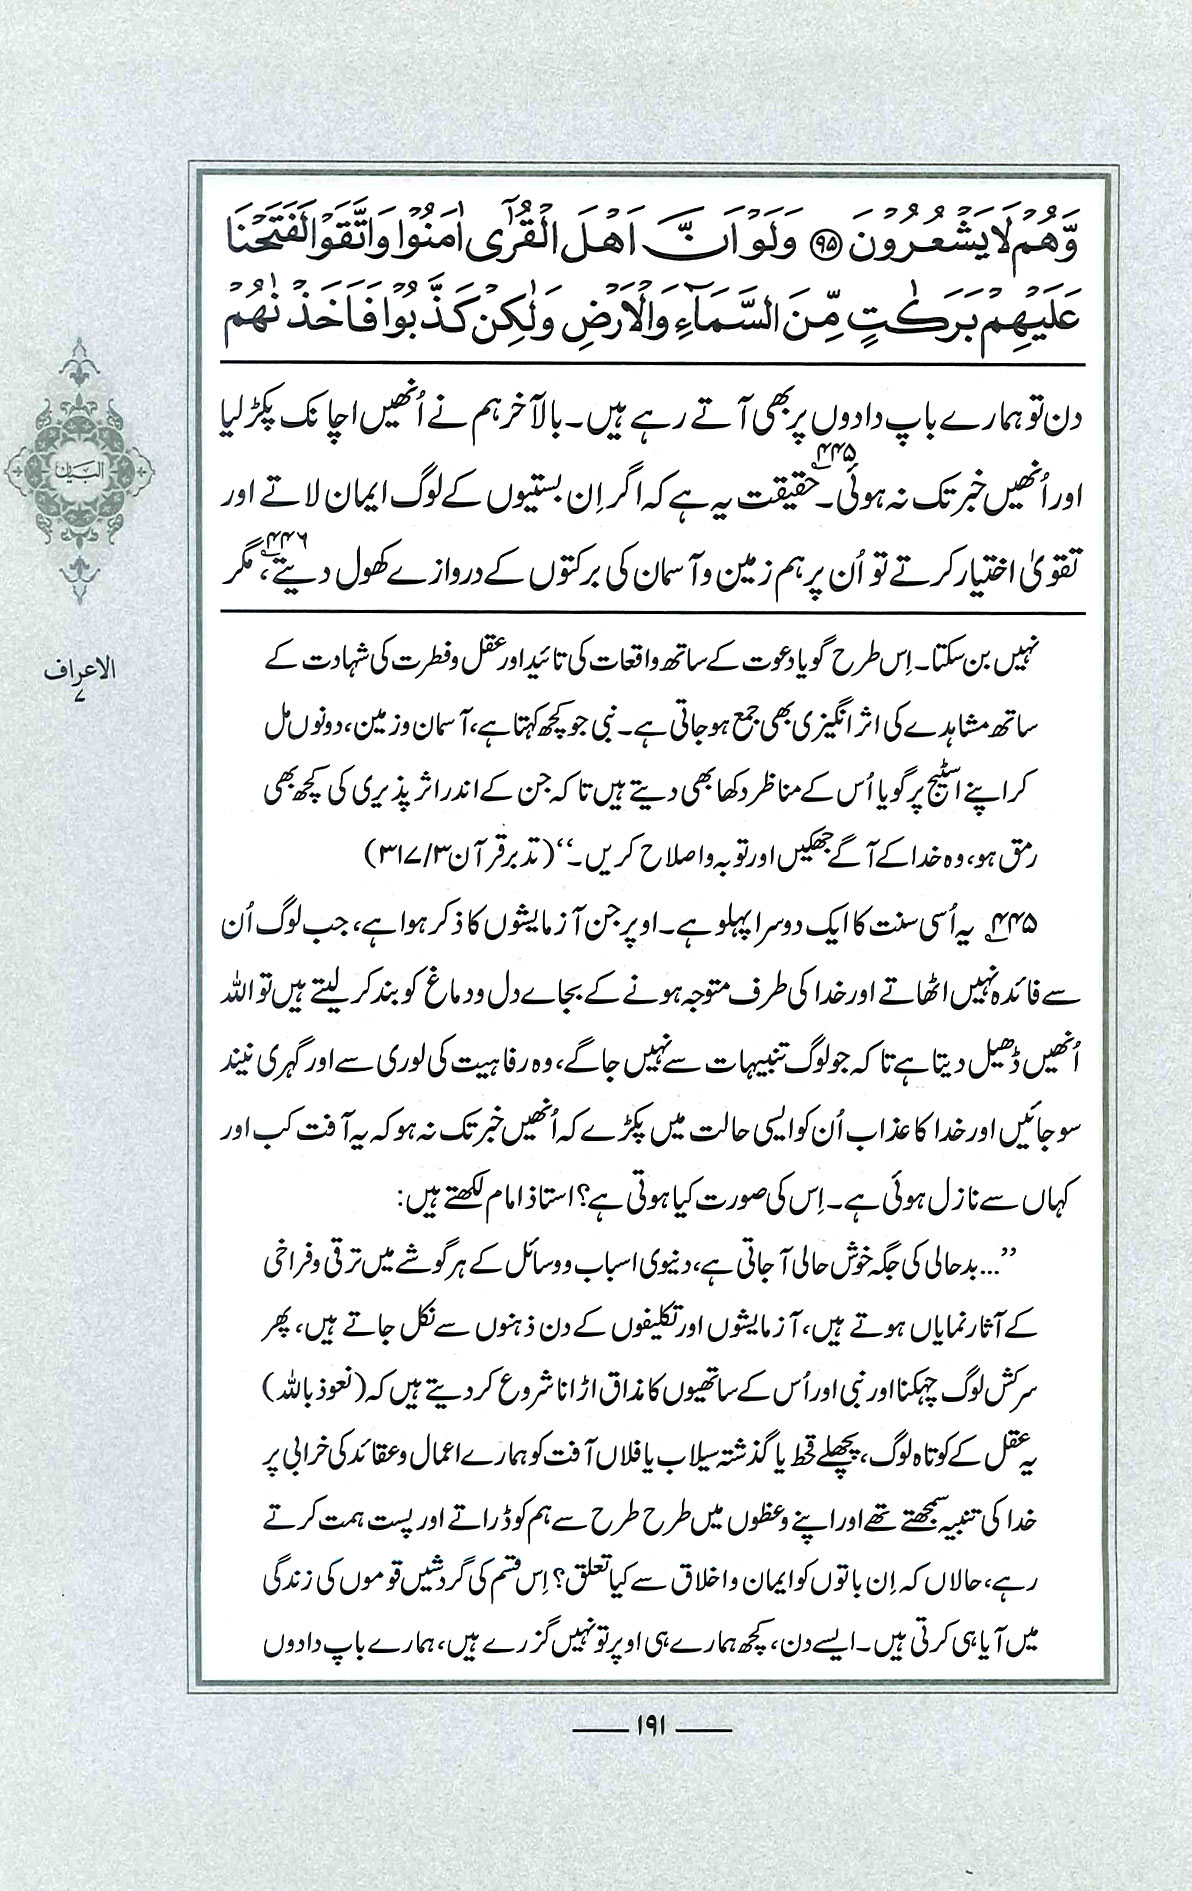 وَّهُمْ لَا يَشْعُرُوْنَ ﴿۹۵﴾ وَلَوْ اَنَّ اَهْلَ الْقُرٰٓى اٰمَنُوْا وَاتَّقَوْا لَفَتَحْنَا
عَلَيْهِمْ بَرَكٰتٍ مِّنَ السَّمَآءِ وَالْاَرْضِ وَلٰكِنْ كَذَّبُوْا فَاَخَذْنٰهُمْ
دن تو ہمارے باپ دادوں پر بھی آتے رہے ہیں۔ بالآخر ہم نے اُنھیں اچانک پکڑ لیا
اور اُنھیں خبر تک نہ ہوئی۔ ۴۴۵ حقیقت یہ ہے کہ اگر اِن بستیوں کے لوگ ایمان لاتے اور
تقویٰ اختیار کرتے تو اُن پر ہم زمین و آسمان کی برکتوں کے دروازے کھول دیتے، ۴۴۶ مگر
نہیں بن سکتا۔ اِس طرح گویا دعوت کے ساتھ واقعات کی تائید اور عقل و فطرت کی شہادت کے
ساتھ مشاہدے کی اثر انگیزی بھی جمع ہو جاتی ہے۔ نبی جو کچھ کہتا ہے، آسمان و زمین، دونوں مل
کر اپنے اسٹیج پر گویا اُس کے مناظر دکھا بھی دیتے ہیں تاکہ جن کے اندر اثر پذیری کی کچھ بھی
رمق ہو، وہ خدا کے آگے جھکیں اور توبہ و اصلاح کریں۔‘‘ (تدبر قرآن ۳/ ۳۱۷)
۴۴۵ یہ اُسی سنت کا ایک دوسرا پہلو ہے۔ اوپر جن آزمایشوں کا ذکر ہوا ہے، جب لوگ اُن
سے فائدہ نہیں اٹھاتے اور خدا کی طرف متوجہ ہونے کے بجاے دل و دماغ کو بند کر لیتے ہیں تو اللہ
اُنھیں ڈھیل دیتا ہے تاکہ جو لوگ تنبیہات سے نہیں جاگے، وہ رفاہیت کی لوری سے اور گہری نیند
سو جائیں اور خدا کا عذاب اُن کو ایسی حالت میں پکڑے کہ اُنھیں خبر تک نہ ہو کہ یہ آفت کب اور
کہاں سے نازل ہوئی ہے۔ اِس کی صورت کیا ہوتی ہے؟ استاذ امام لکھتے ہیں:
’’...بدحالی کی جگہ خوش حالی آ جاتی ہے، دنیوی اسباب و وسائل کے ہر گوشے میں ترقی و فراخی
کے آثار نمایاں ہوتے ہیں، آزمایشوں اور تکلیفوں کے دن ذہنوں سے نکل جاتے ہیں، پھر
سرکش لوگ چہکنا اور نبی اور اُس کے ساتھیوں کا مذاق اڑانا شروع کر دیتے ہیں کہ (نعوذ باللہ)
یہ عقل کے کوتاہ لوگ، پچھلے قحط یا گذشتہ سیلاب یا فلاں آفت کو ہمارے اعمال و عقائد کی خرابی پر
خدا کی تنبیہ سمجھتے تھے اور اپنے وعظوں میں طرح طرح سے ہم کو ڈراتے اور پست ہمت کرتے
رہے، حالاں کہ اِن باتوں کو ایمان و اخلاق سے کیا تعلق؟ اِس قسم کی گردشیں قوموں کی زندگی
میں آیا ہی کرتی ہیں۔ ایسے دن، کچھ ہمارے ہی اوپر تو نہیں گزرے ہیں، ہمارے باپ دادوں
البیان
الاعراف
۷
۱۹۱